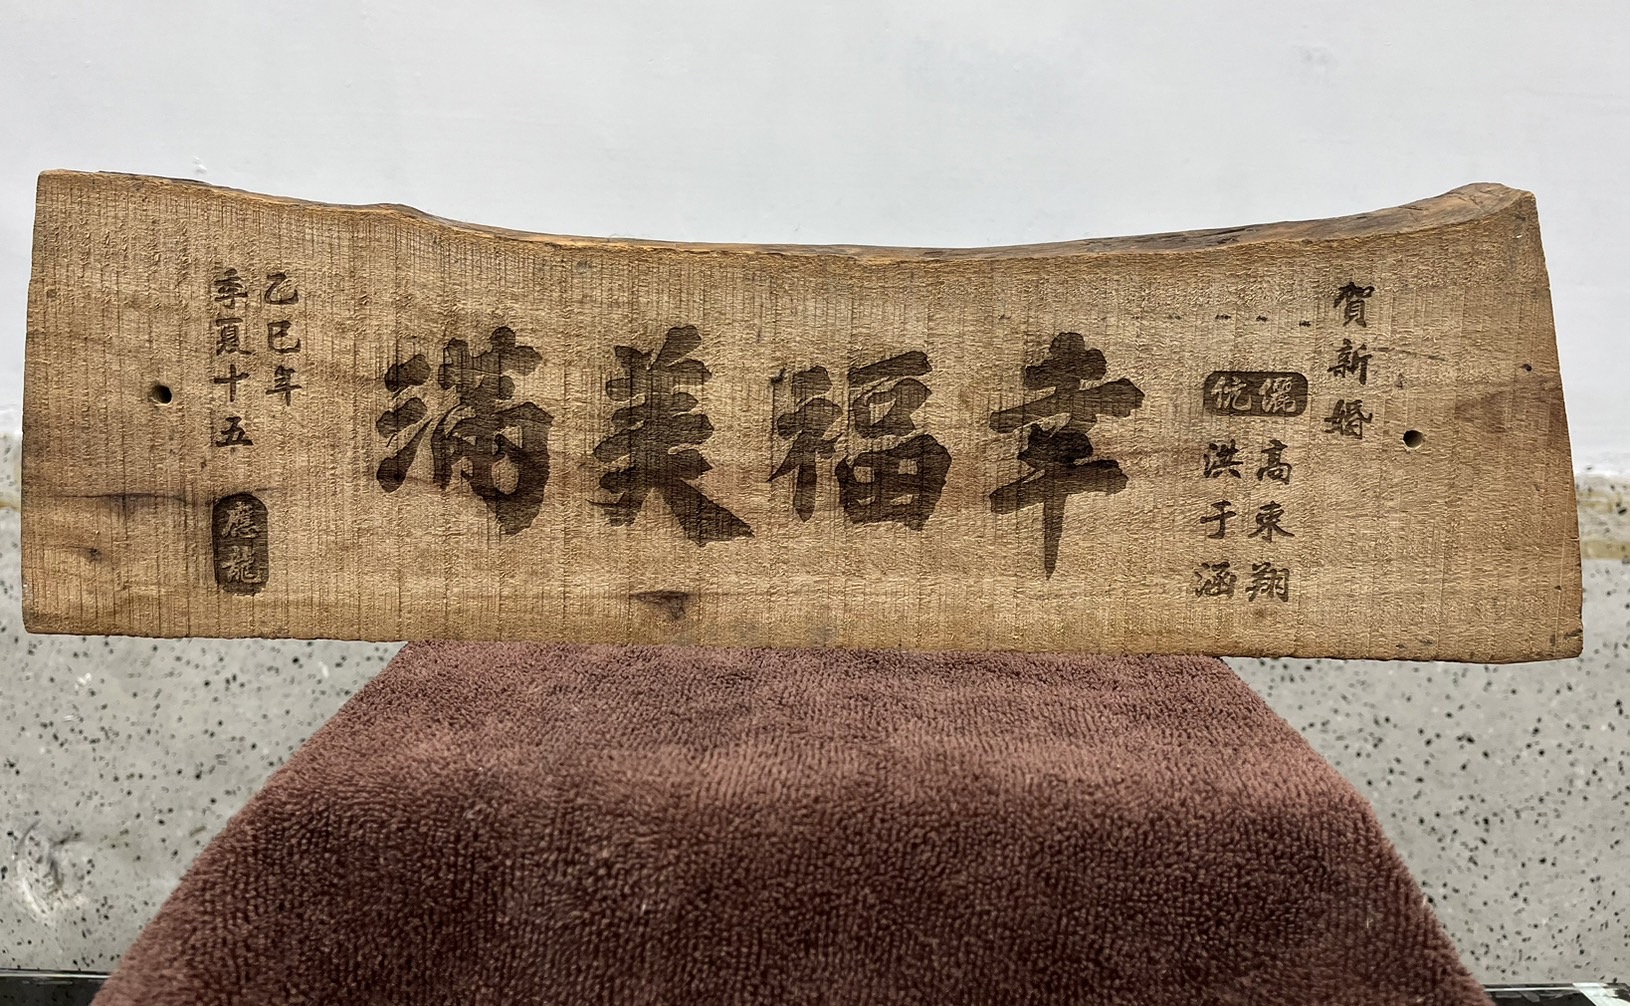 賀新婚
儷伉
高東翔
洪于涵
幸福美滿
乙巳年
季夏十五
應龍